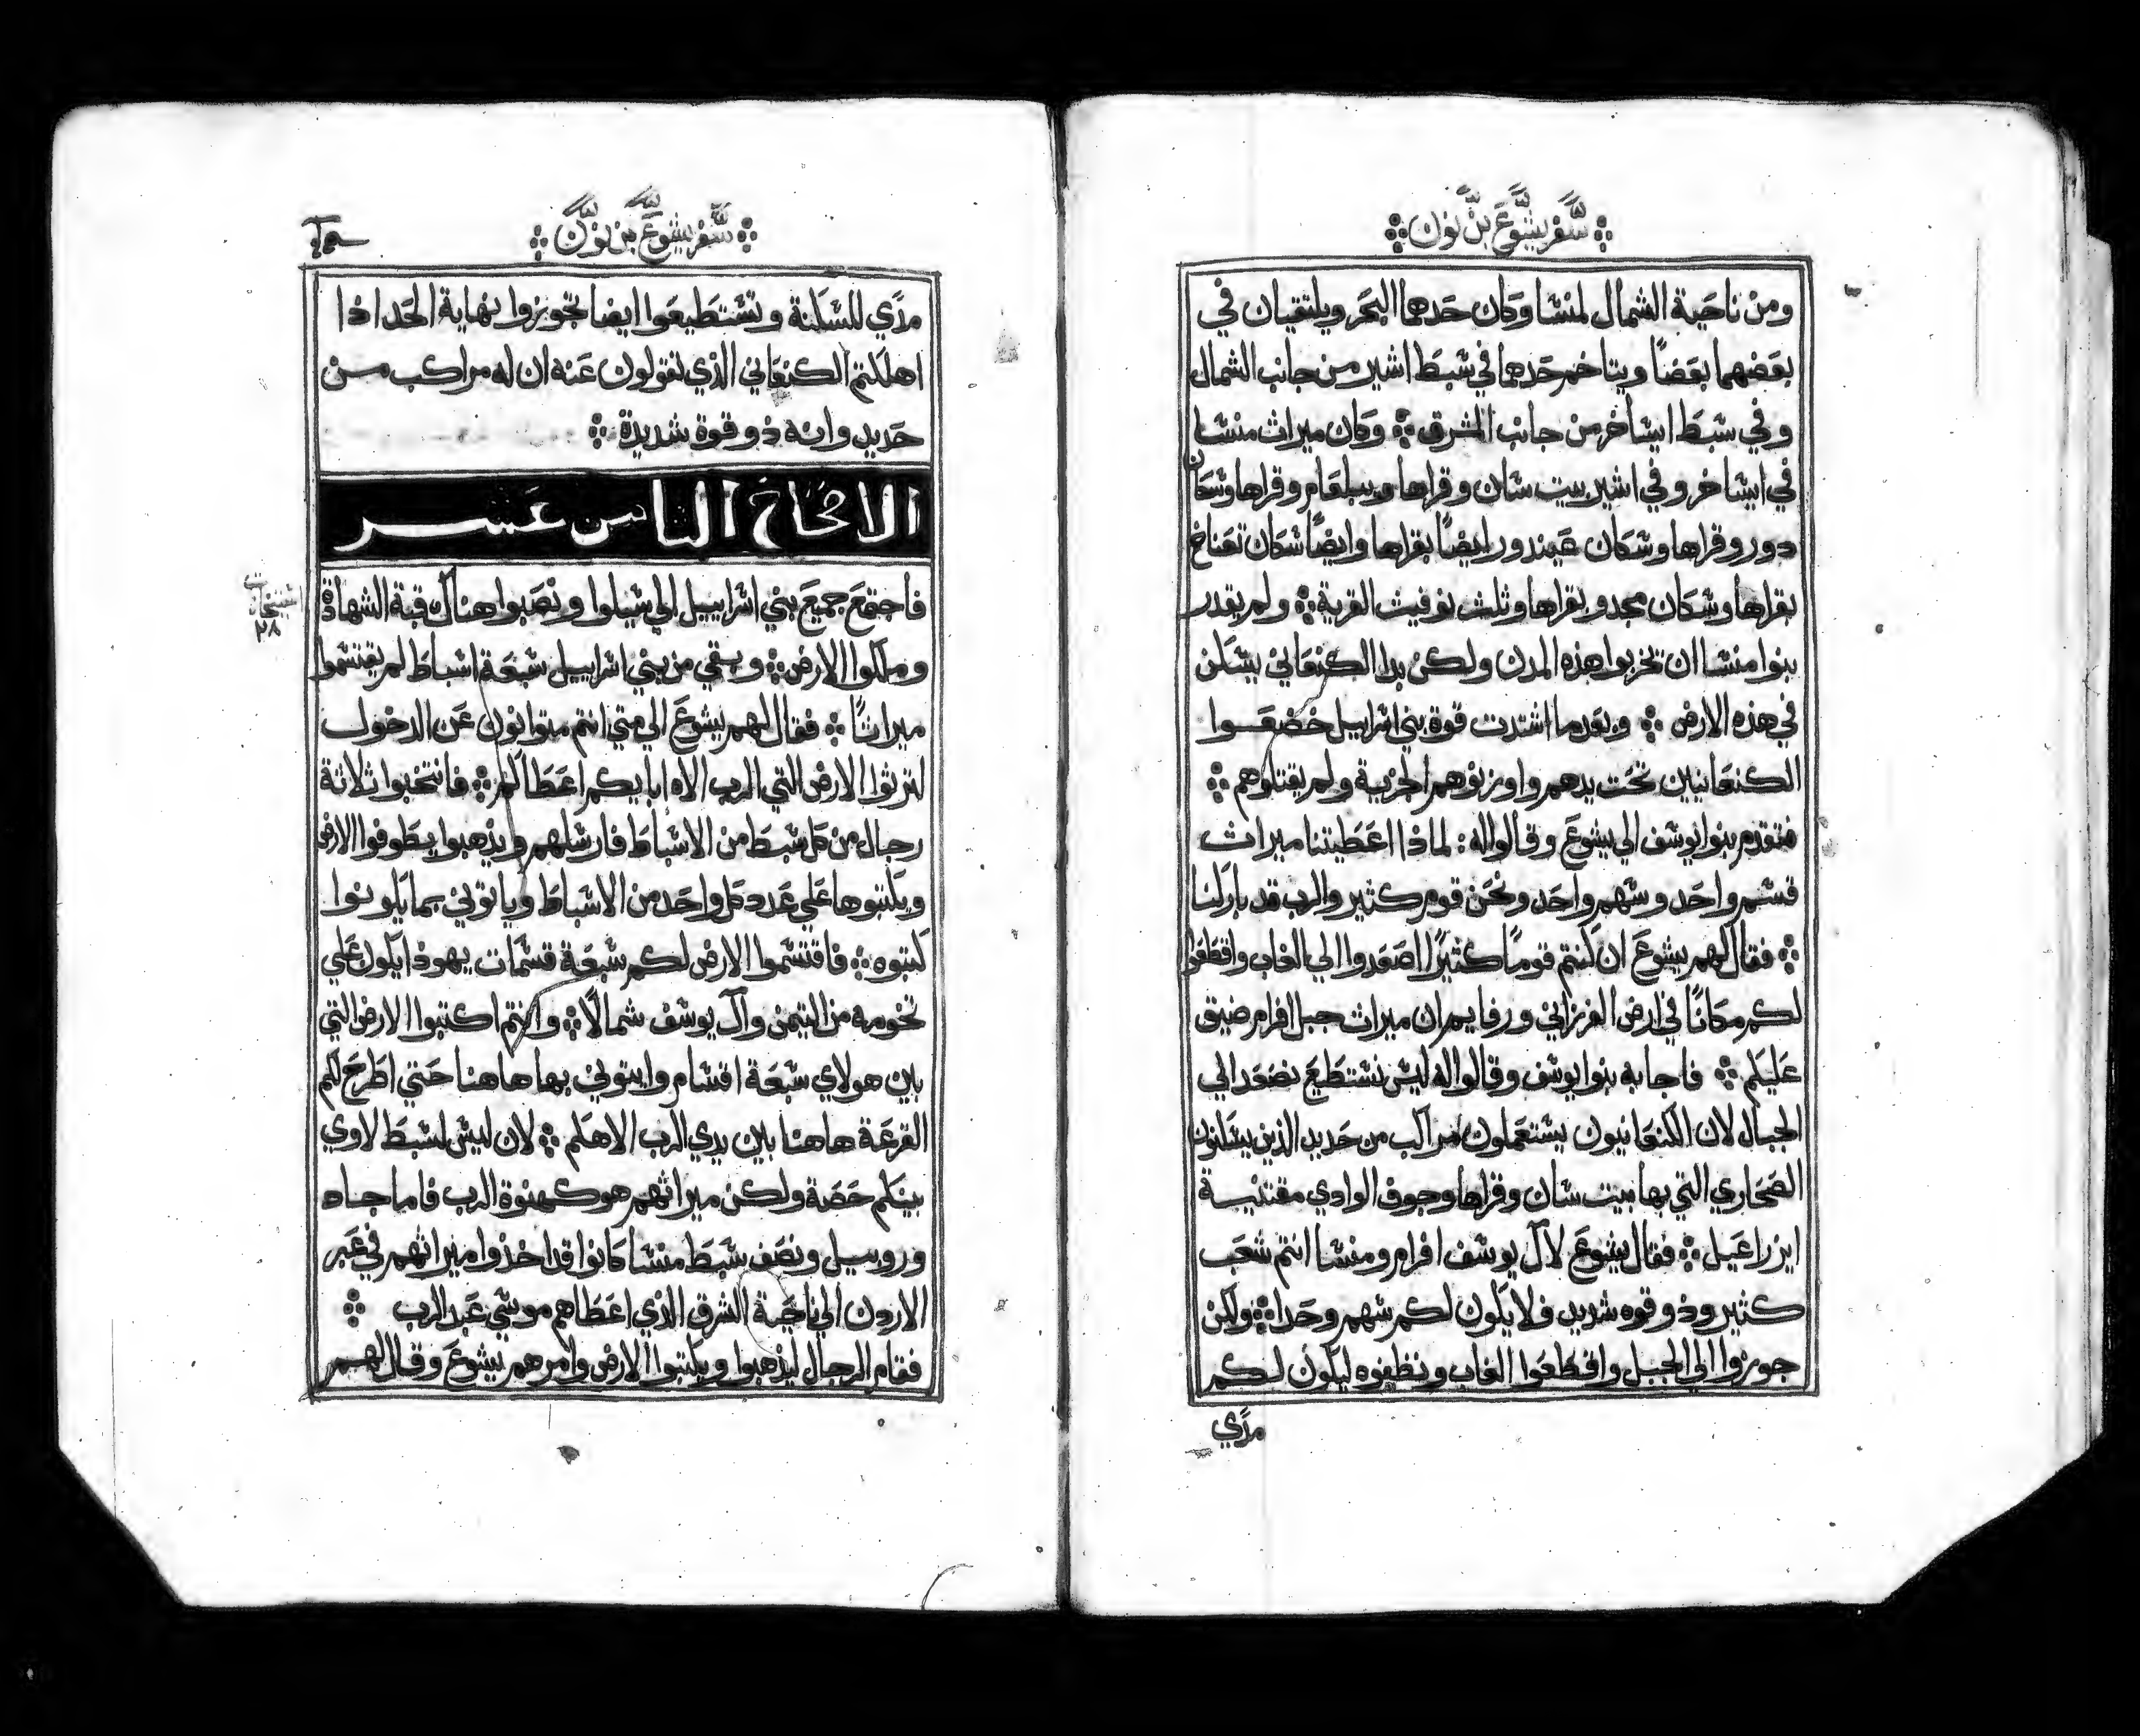 سفر يشوع بن نون
ومن ناحية الشمال لمنشا وكان حدهما البحر ويلتقيان في
بعضهما بعضًا ويتاخم حدهما في سبط اشير من جانب الشمال
وفي سبط ايساخر من جانب المشرق وكان ميراث منشا
في ايساخر وفي اشير بيت سان وقراها ويبلعام وقراها وسكان
دور وقراها وسكان عيندور ايضًا بقراها وايضًا سكان تعناخ
بقراها وسكان مجدو بقراها وثلث نوفيث القرية ولم يقدر
بنوا منشا ان يخربوا هذه المدن ولكن بدا الكنعاني يسكن
في هذه الارض وبعدما اشتدت قوة بني اسراييل خضعوا
الكنعانيين تحت يدهم واوزنوهم الجزية ولم يقتلوهم
فتقدم بنوا يوسف الي يشوع وقالوا له: لماذا اعطيتنا ميراث
قسم واحد وسهم واحد ونحن قوم كثير والرب قد باركنا
فقال لهم يشوع ان كنتم قومًا كثيرًا اصعدوا الي الغاب واقطعوا
لكم مكانًا في ارض الفرزاني ورفايم ان ميراث جبل افرام ضيق
عليكم فاجابه بنوا يوسف وقالوا له ليس نستطيع نصعد الي
الجبال لان الكنعانيون يستعملون مراكب من حديد الذين يسكنون
الصحاري التي بها بيت سان وقراها وجوف الوادي مقتنية
ايزراعيل فقال يشوع لال يوسف افرام ومنشا انتم شعب
كثير وذو قوه شديد فلا يكون لكم سهم وحدا ولكن
جوزوا الي الجبل واقطعوا الغاب ونظفوه ليكون لكم
مدي
سفر يشوع بن نون
مدي للسكنة وتستطيعوا ايضا تجويزوا نهاية الحد اذا
اهلكتم الكنعاني الذي تقولون عنه ان له مراكب من
حديد وانه ذو قوة شديدة
الاصحاح الثامن عشر
فاجتمع جميع بني اسراييل الي شيلوا ونصبوا هناك قبة الشهادة
وملكوا الارض وبقي من بني اسراييل سبعة اسباط لم يقتسموا
ميراثًا فقال لهم يشوع الي متي انتم متوانون عن الدخول
لترثوا الارض التي الرب الاه ابايكم اعطا لكم فانتخبوا ثلاثة
رجال من كل سبط من الاسباط فارسلهم ويذهبوا يطوفوا الارض
ويكتبوها علي عدد كل واحد من الاسباط وياتوني بما يكونوا
كتبوه فاقتسموا الارض لكم سبعة قسمات يهوذا يكون علي
تخومه من التيمن وآل يوسف شمالًا وانتم اكتبوا الارض التي
بين هولاي سبعة اقسام وايتوني بها هاهنا حتي اطرح لكم
القرعة هاهنا بين يدي الرب الاهكم لان ليس لسبط لاوي
بينكم حصة ولكن ميراثهم هو كهنوة الرب فاما جاد
وروبيل ونصف سبط منشا كانوا قد اخذوا ميراثهم في عبر
الاردن الي ناحية الشرق الذي اعطاهم موسي عبد الرب
فقام الرجال ليذهبوا ويكتبوا الارض وامرهم يشوع وقال لهم
٢٨